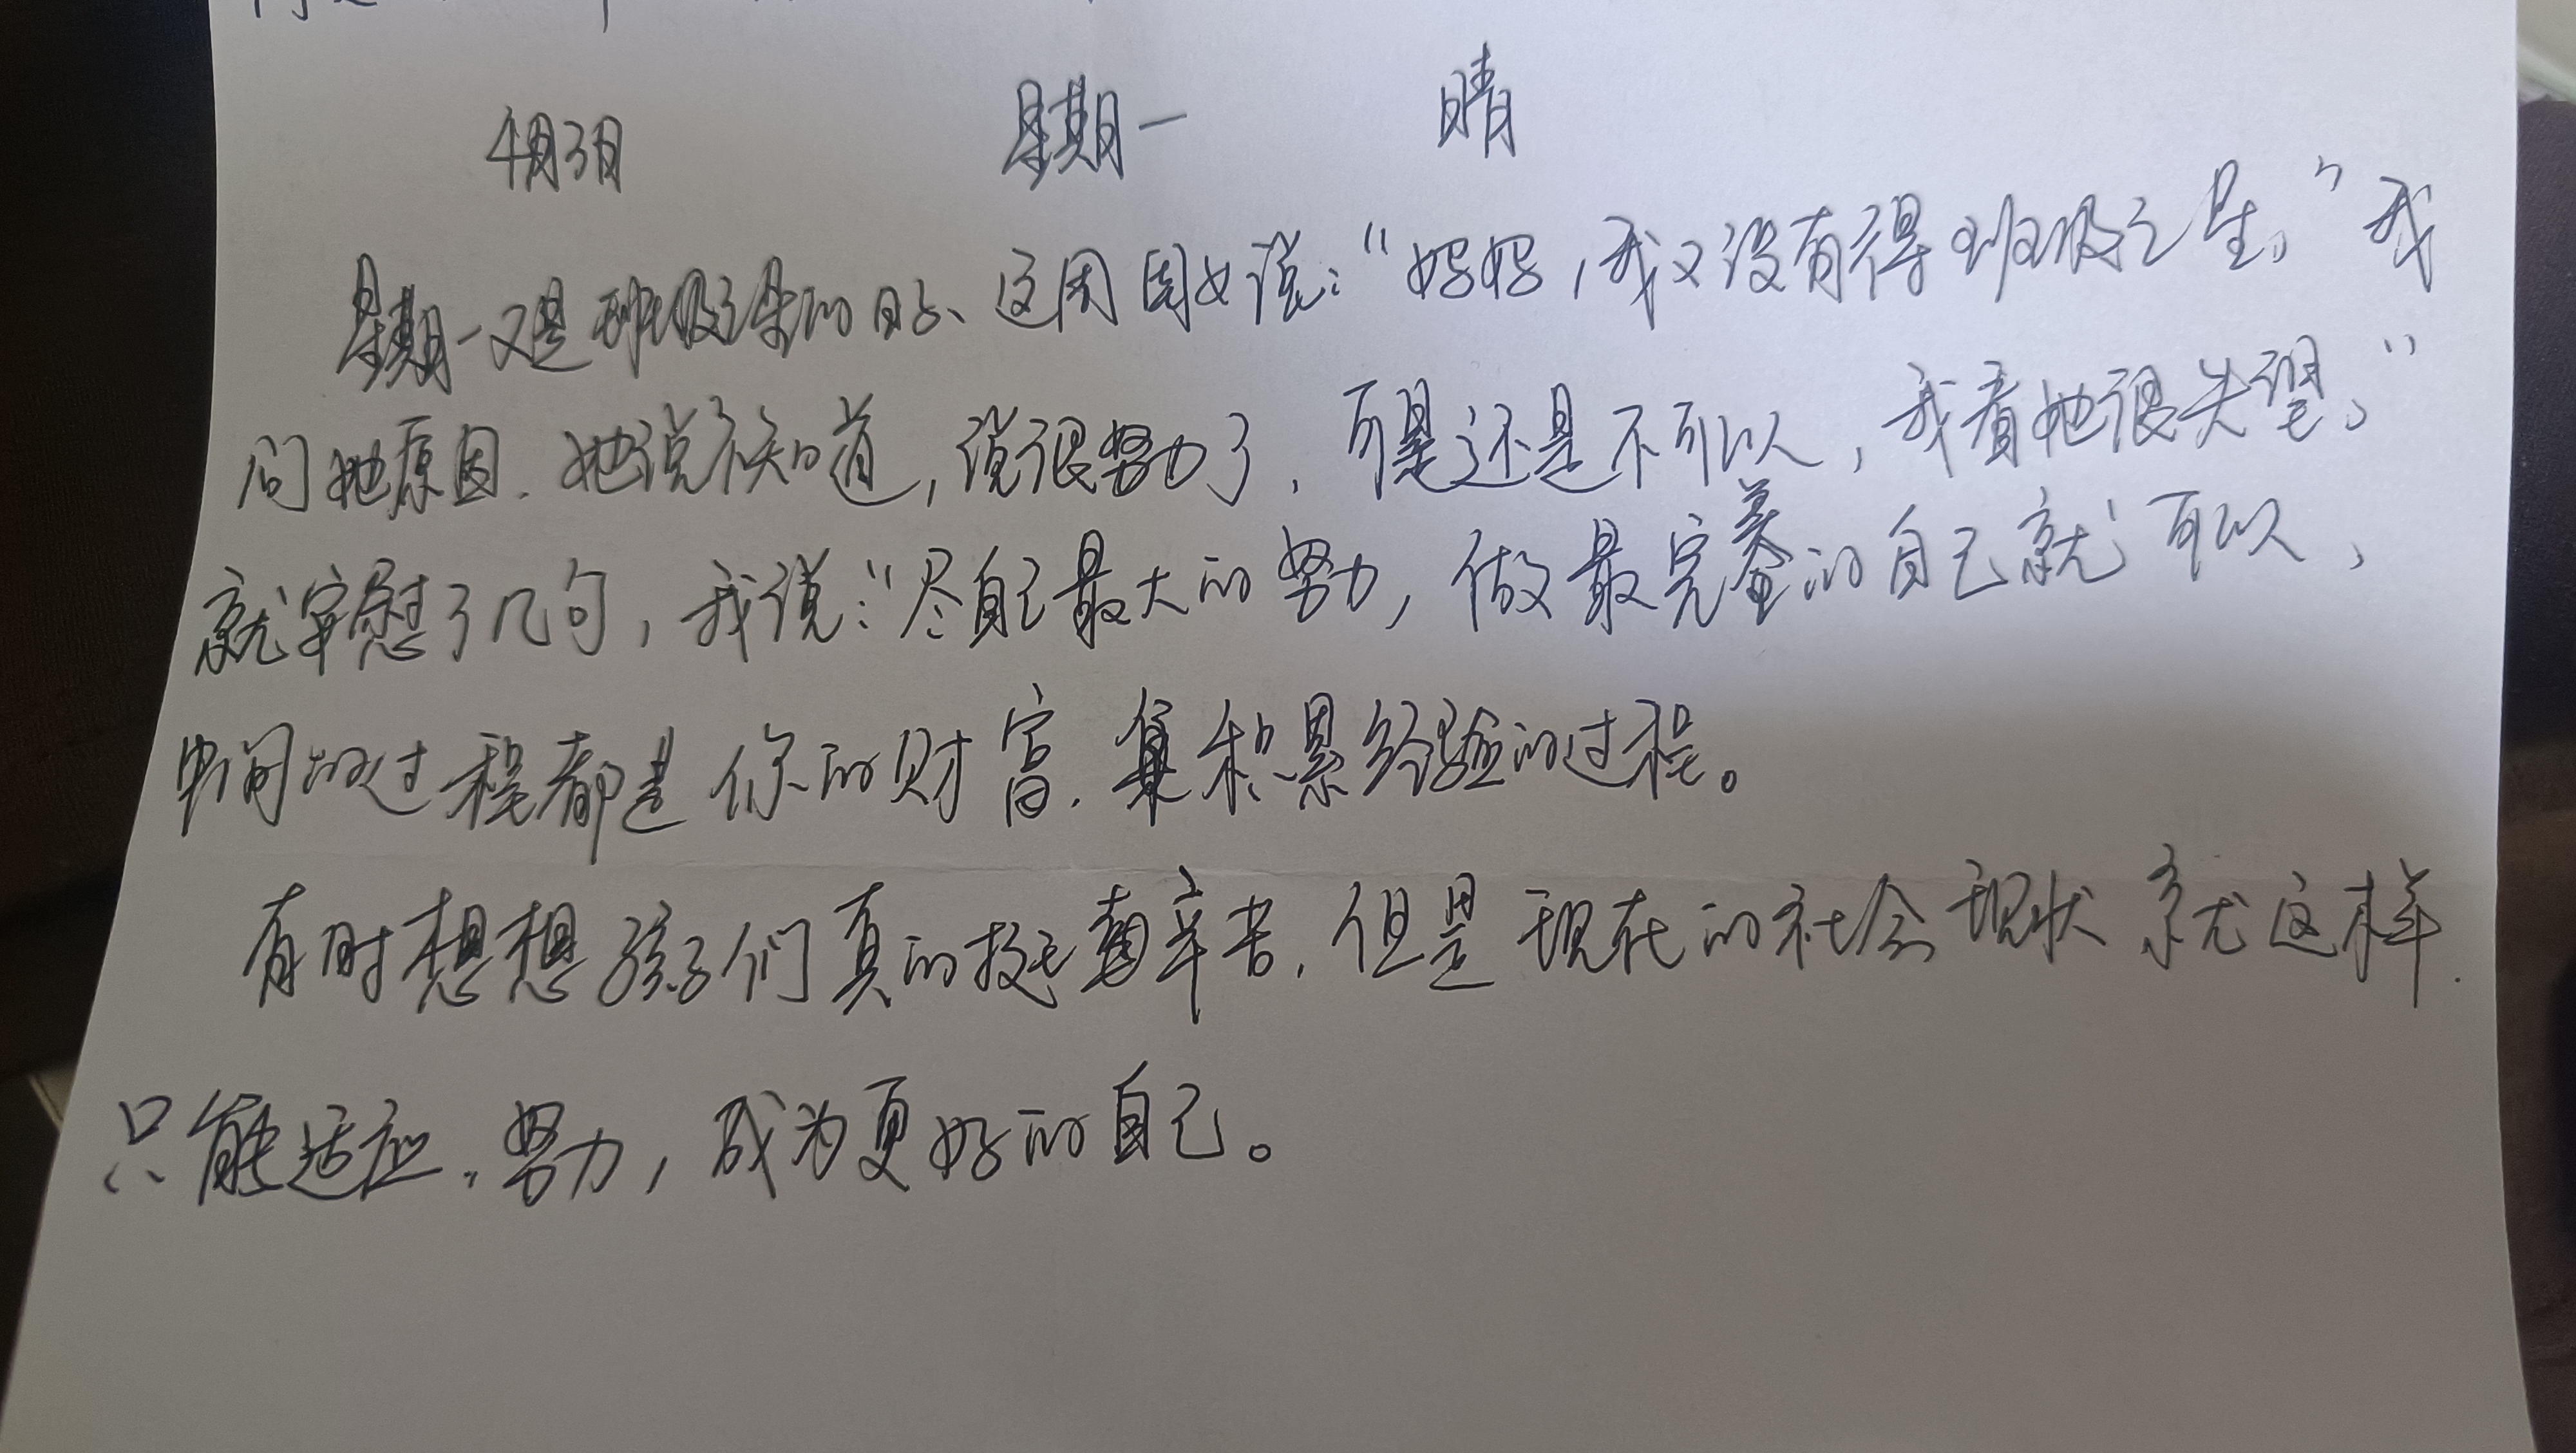 4月3日 星期一 晴
星期一又是班级之星的日子、这周闺女说:“妈妈,我又没有得班级之星。”我
问她原因.她说不知道,说很努力了,可是还是不可以,我看她很失望。”
就安慰了几句,我说:“尽自己最大的努力,做最完美的自己就可以,
中间的过程都是你的财富.积累经验的过程。
有时想想孩子们真的挺辛苦,但是现在的社会现状就这样.
只能适应.努力,成为更好的自己。